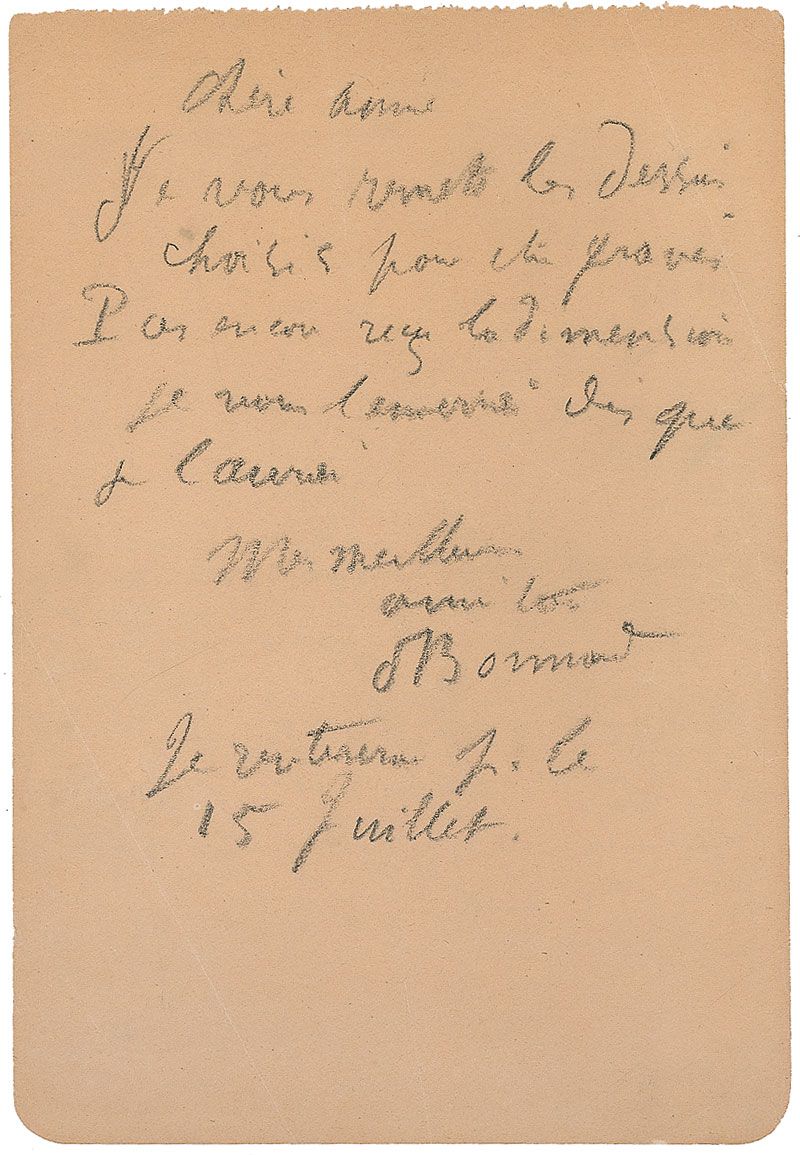 Chère amie
Je vous remets les dessins
choisis pour être gravés
Pas encore reçu la dimension
je vous l'enverrai dès que
je l'aurai
Mes meilleures
amitiés
PBonnard
Je rentrerai p. le
15 Juillet.